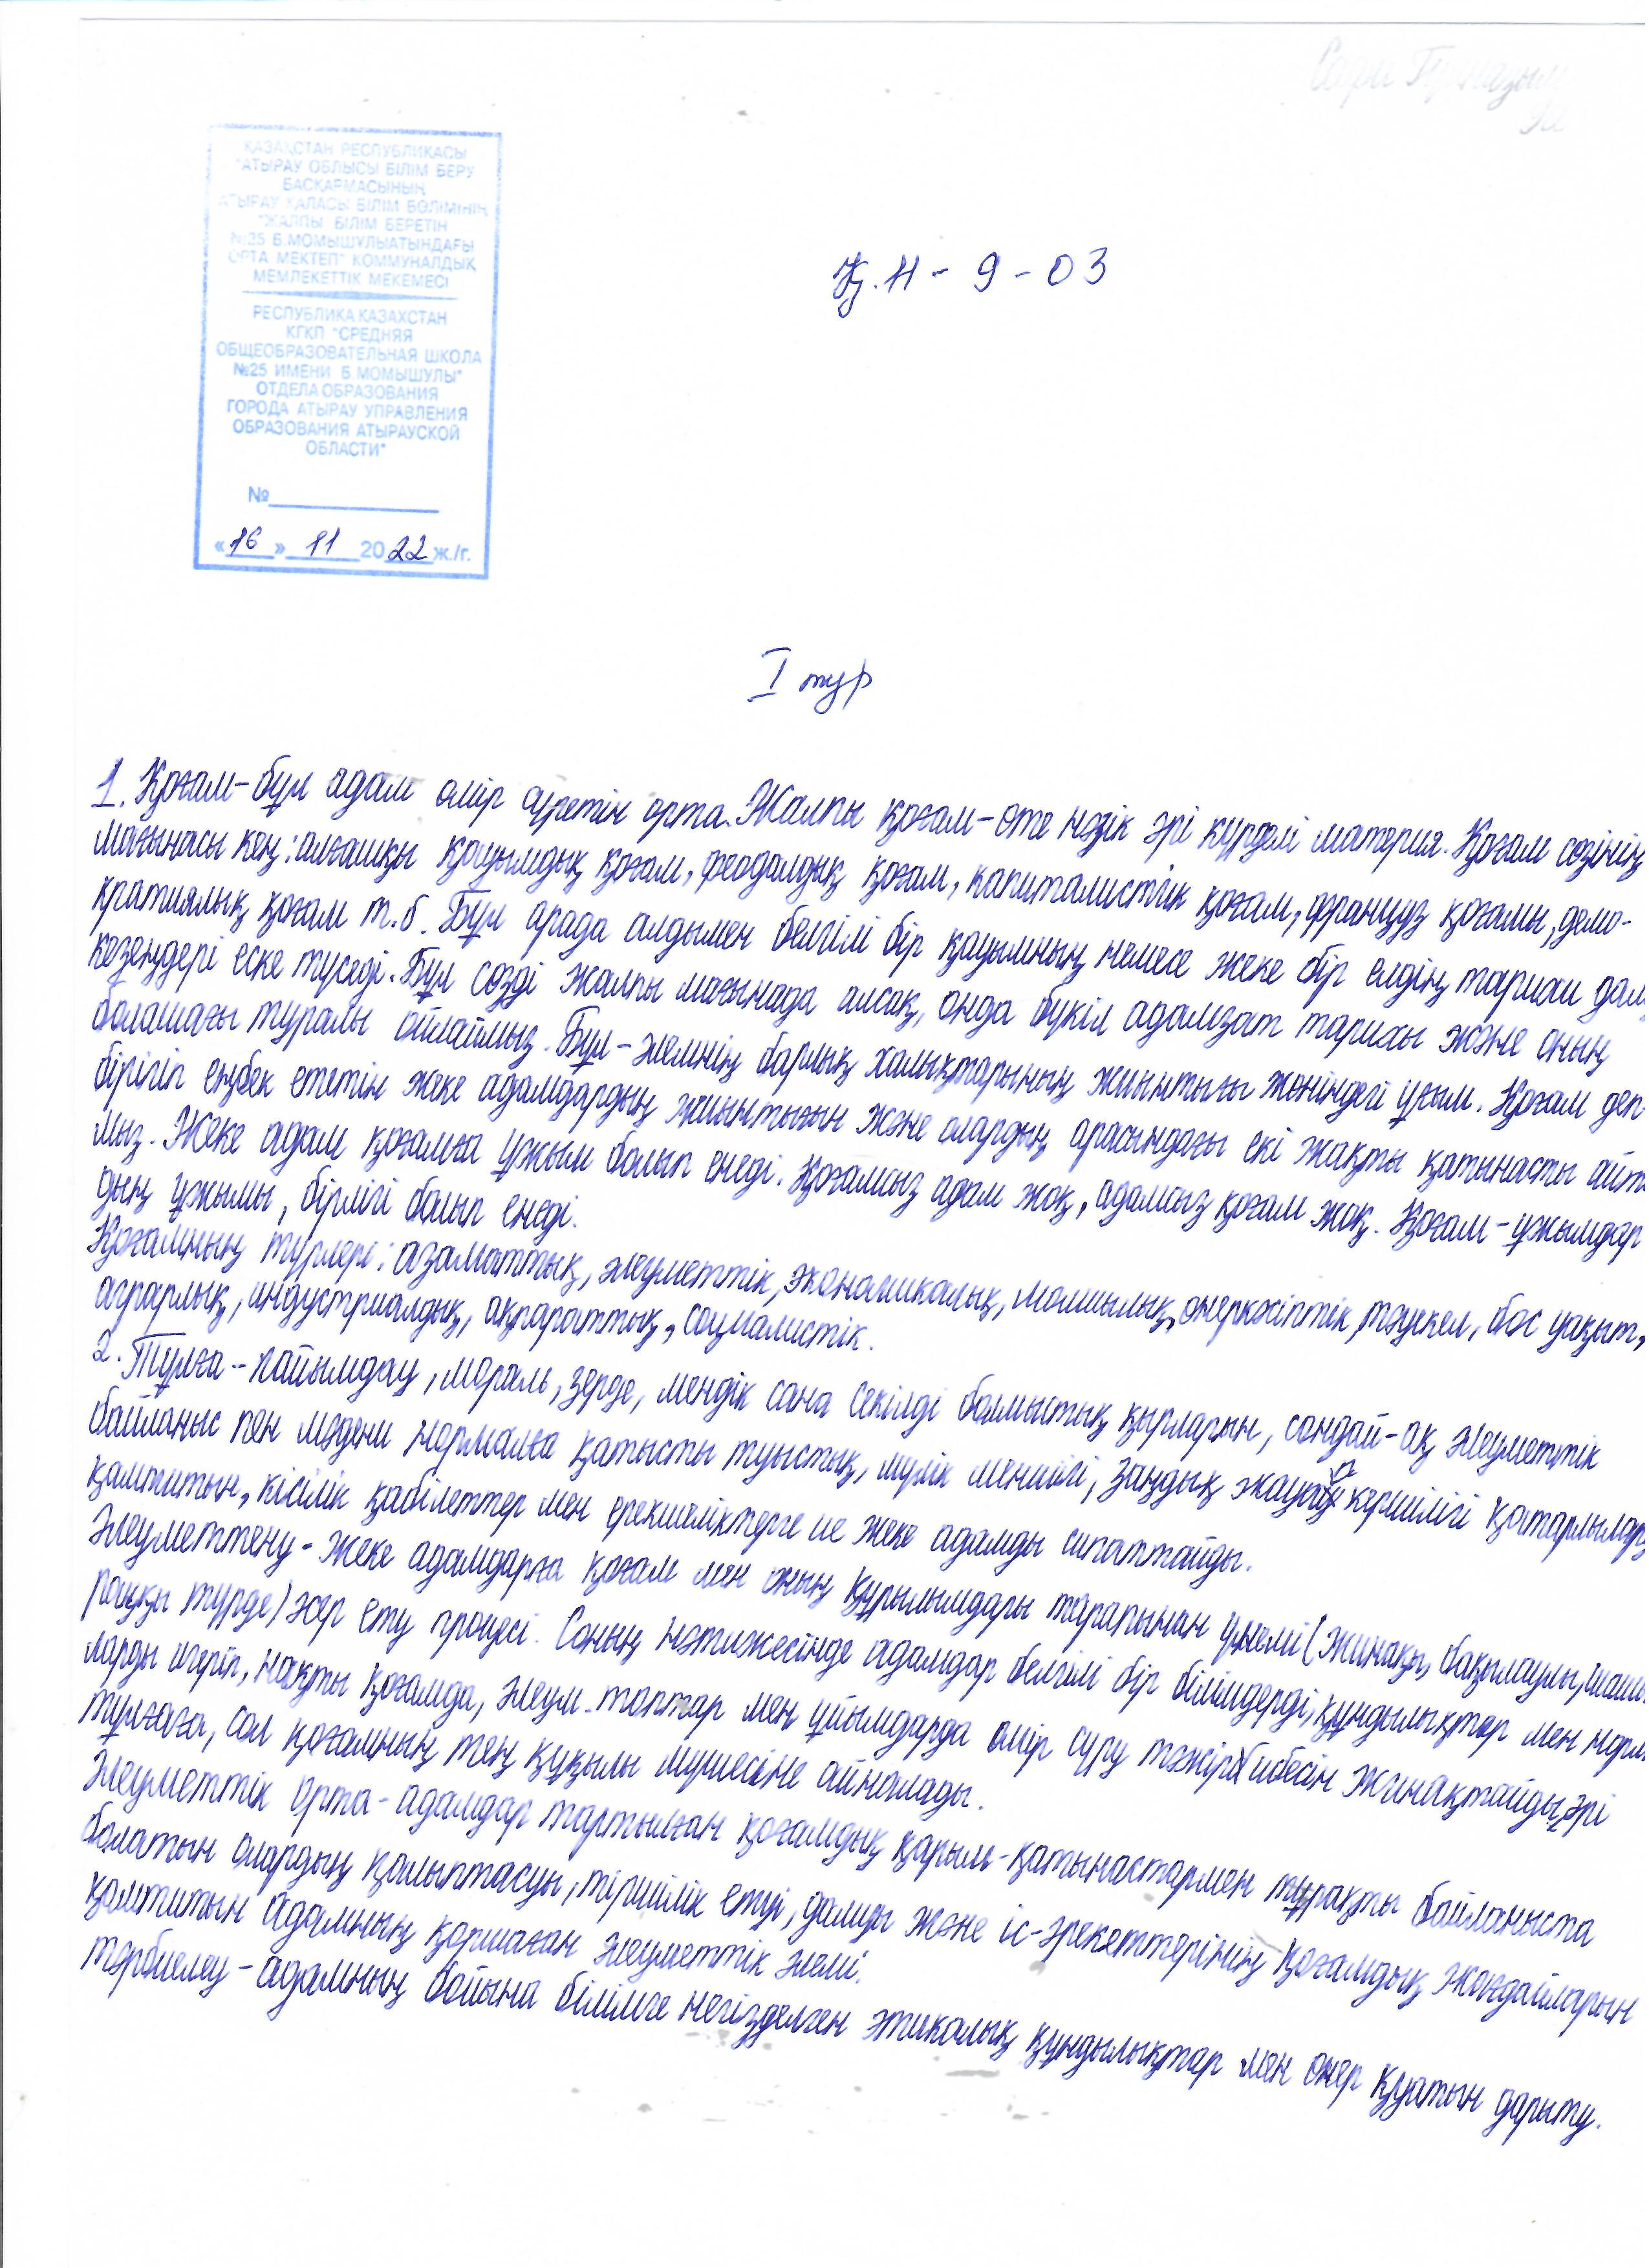 ҚАЗАҚСТАН РЕСПУБЛИКАСЫ
"АТЫРАУ ОБЛЫСЫ БІЛІМ БЕРУ
БАСҚАРМАСЫНЫҢ
АТЫРАУ ҚАЛАСЫ БІЛІМ БӨЛІМІНІҢ
"ЖАЛПЫ БІЛІМ БЕРЕТІН
№25 Б.МОМЫШҰЛЫАТЫНДАҒЫ
ОРТА МЕКТЕП" КОММУНАЛДЫҚ
МЕМЛЕКЕТТІК МЕКЕМЕСІ
РЕСПУБЛИКА КАЗАХСТАН
КГКП "СРЕДНЯЯ
ОБЩЕОБРАЗОВАТЕЛЬНАЯ ШКОЛА
№25 ИМЕНИ Б.МОМЫШУЛЫ"
ОТДЕЛА ОБРАЗОВАНИЯ
ГОРОДА АТЫРАУ УПРАВЛЕНИЯ
ОБРАЗОВАНИЯ АТЫРАУСКОЙ
ОБЛАСТИ"
№
«16» 11 2022 ж./г.
Қ.Н - 9 - 03
I тур
1. Қоғам-бұл адам өмір сүретін орта. Жалпы қоғам-өте нәзік әрі күрделі материя. Қоғам сөзінің
мағынасы кең: алғашқы қауымдық қоғам, феодалдық қоғам, капиталистік қоғам, француз қоғамы, демо-
кратиялық қоғам т.б. Бұл арада алдымен белгілі бір қауымның немесе жеке бір елдің тарихи дам
кезеңдері еске түседі. Бұл сөзді жалпы мағынада алсақ, онда бүкіл адамзат тарихы және оның
болашағы туралы ойлаймыз. Бұл-әлемнің барлық халықтарының жиынтығы жөніндегі ұғым. Қоғам деп
бірігіп еңбек ететін жеке адамдардың жиынтығын және олардың арасындағы екі жақты қатынасты айта
мыз. Жеке адам қоғамға ұжым болып енеді. Қоғамсыз адам жоқ, адамсыз қоғам жоқ. Қоғам-ұжымдар
дың ұжымы, бірлігі болып енеді.
Қоғамның түрлері: азаматтық, әлеуметтік, экономикалық, малшылық, өнеркәсіптік, тәуекел, бос уақыт,
аграрлық, индустриалдық, ақпараттық, социалистік.
2. Тұлға-пайымдау, мораль, зерде, мендік сана секілді болмыстық қырларын, сондай-ақ әлеуметтік
байланыс пен мәдени нормаға қатысты туыстық, мүлік меншігі, заңдық жауап кершілігі қатарлылар
қамтитын, кісілік қабілеттер мен ерекшеліктерге ие жеке адамды сипаттайды.
Әлеуметтену-жеке адамдарға қоғам мен оның құрылымдары тарапынан үнемі (жинақы, бақылаулы, шашы
раңқы түрде) әсер ету процесі. Соның нәтижесінде адамдар белгілі бір білімдерді, құндылықтар мен норма
ларды игеріп, нақты қоғамда, әлеум. топтар мен ұйымдарда өмір сүру тәжірибесін жинақтайды, әрі
тұлғаға, сол қоғамның тең құқылы мүшесіне айналады.
Әлеуметтік орта-адамдар тартылған қоғамдық қарым-қатынастармен тұрақты байланыста
болатын олардың қалыптасуы, тіршілік етуі, дамуы және іс-әрекеттерінің қоғамдық жағдайларын
қамтитын адамның қоршаған әлеуметтік әлемі.
Тәрбиелеу-адамның бойына білімге негізделген этикалық құндылықтар мен өнер қуатын дарыту.